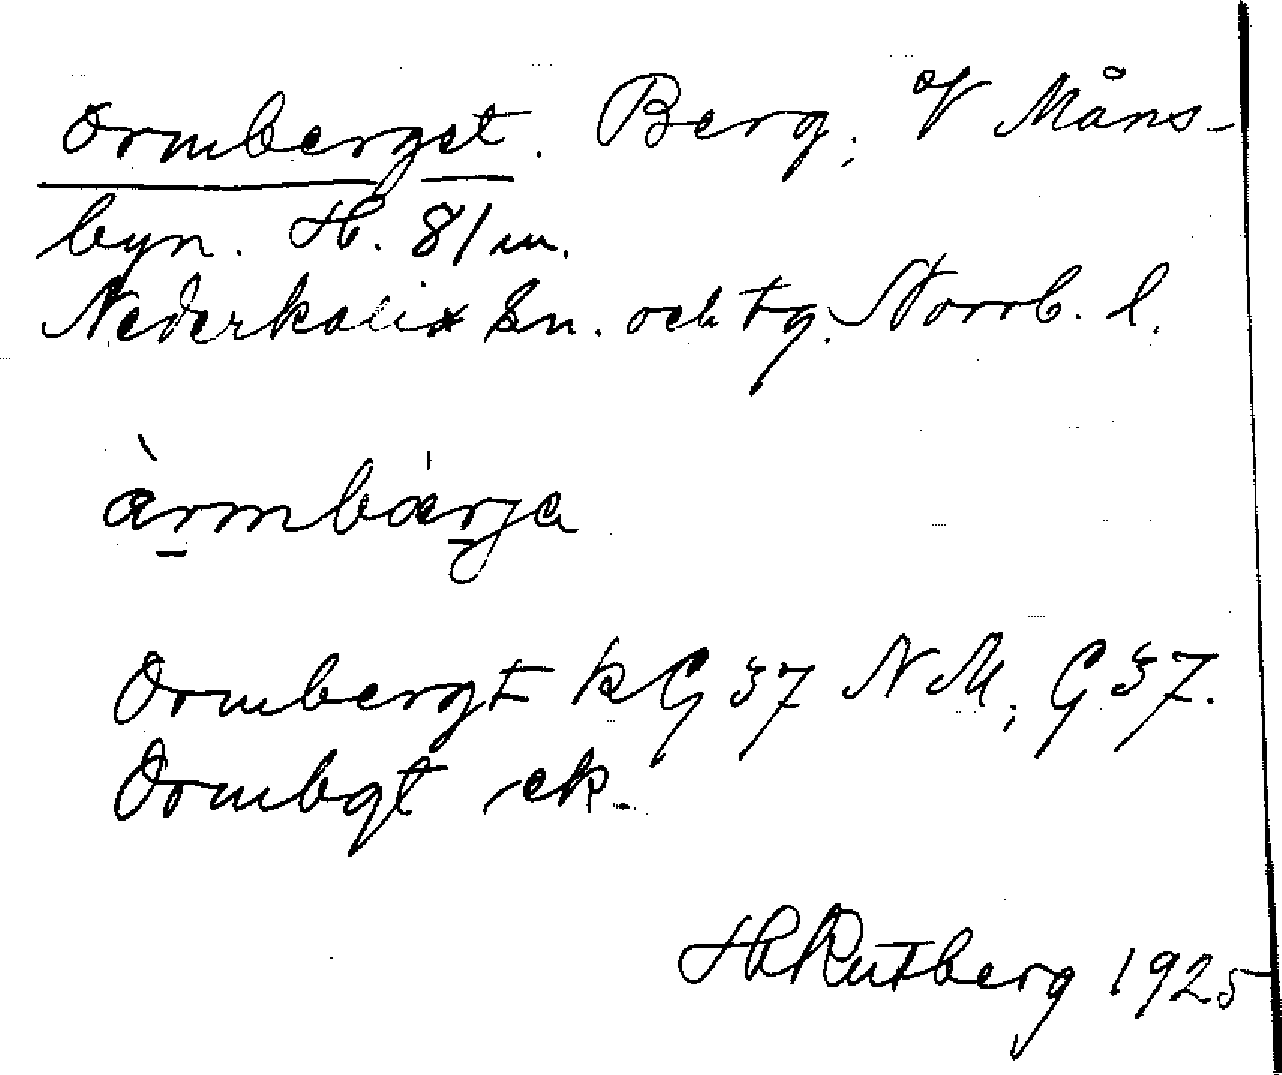 Ormberget. Berg, V Måns-
byn. H. 81 m.
Nederkalix sn. och tg. Norrb. l.
àrmbárja
Ormbergt k G 37 NM; G 37.
Ormbgt ek.
H Rutberg 1925